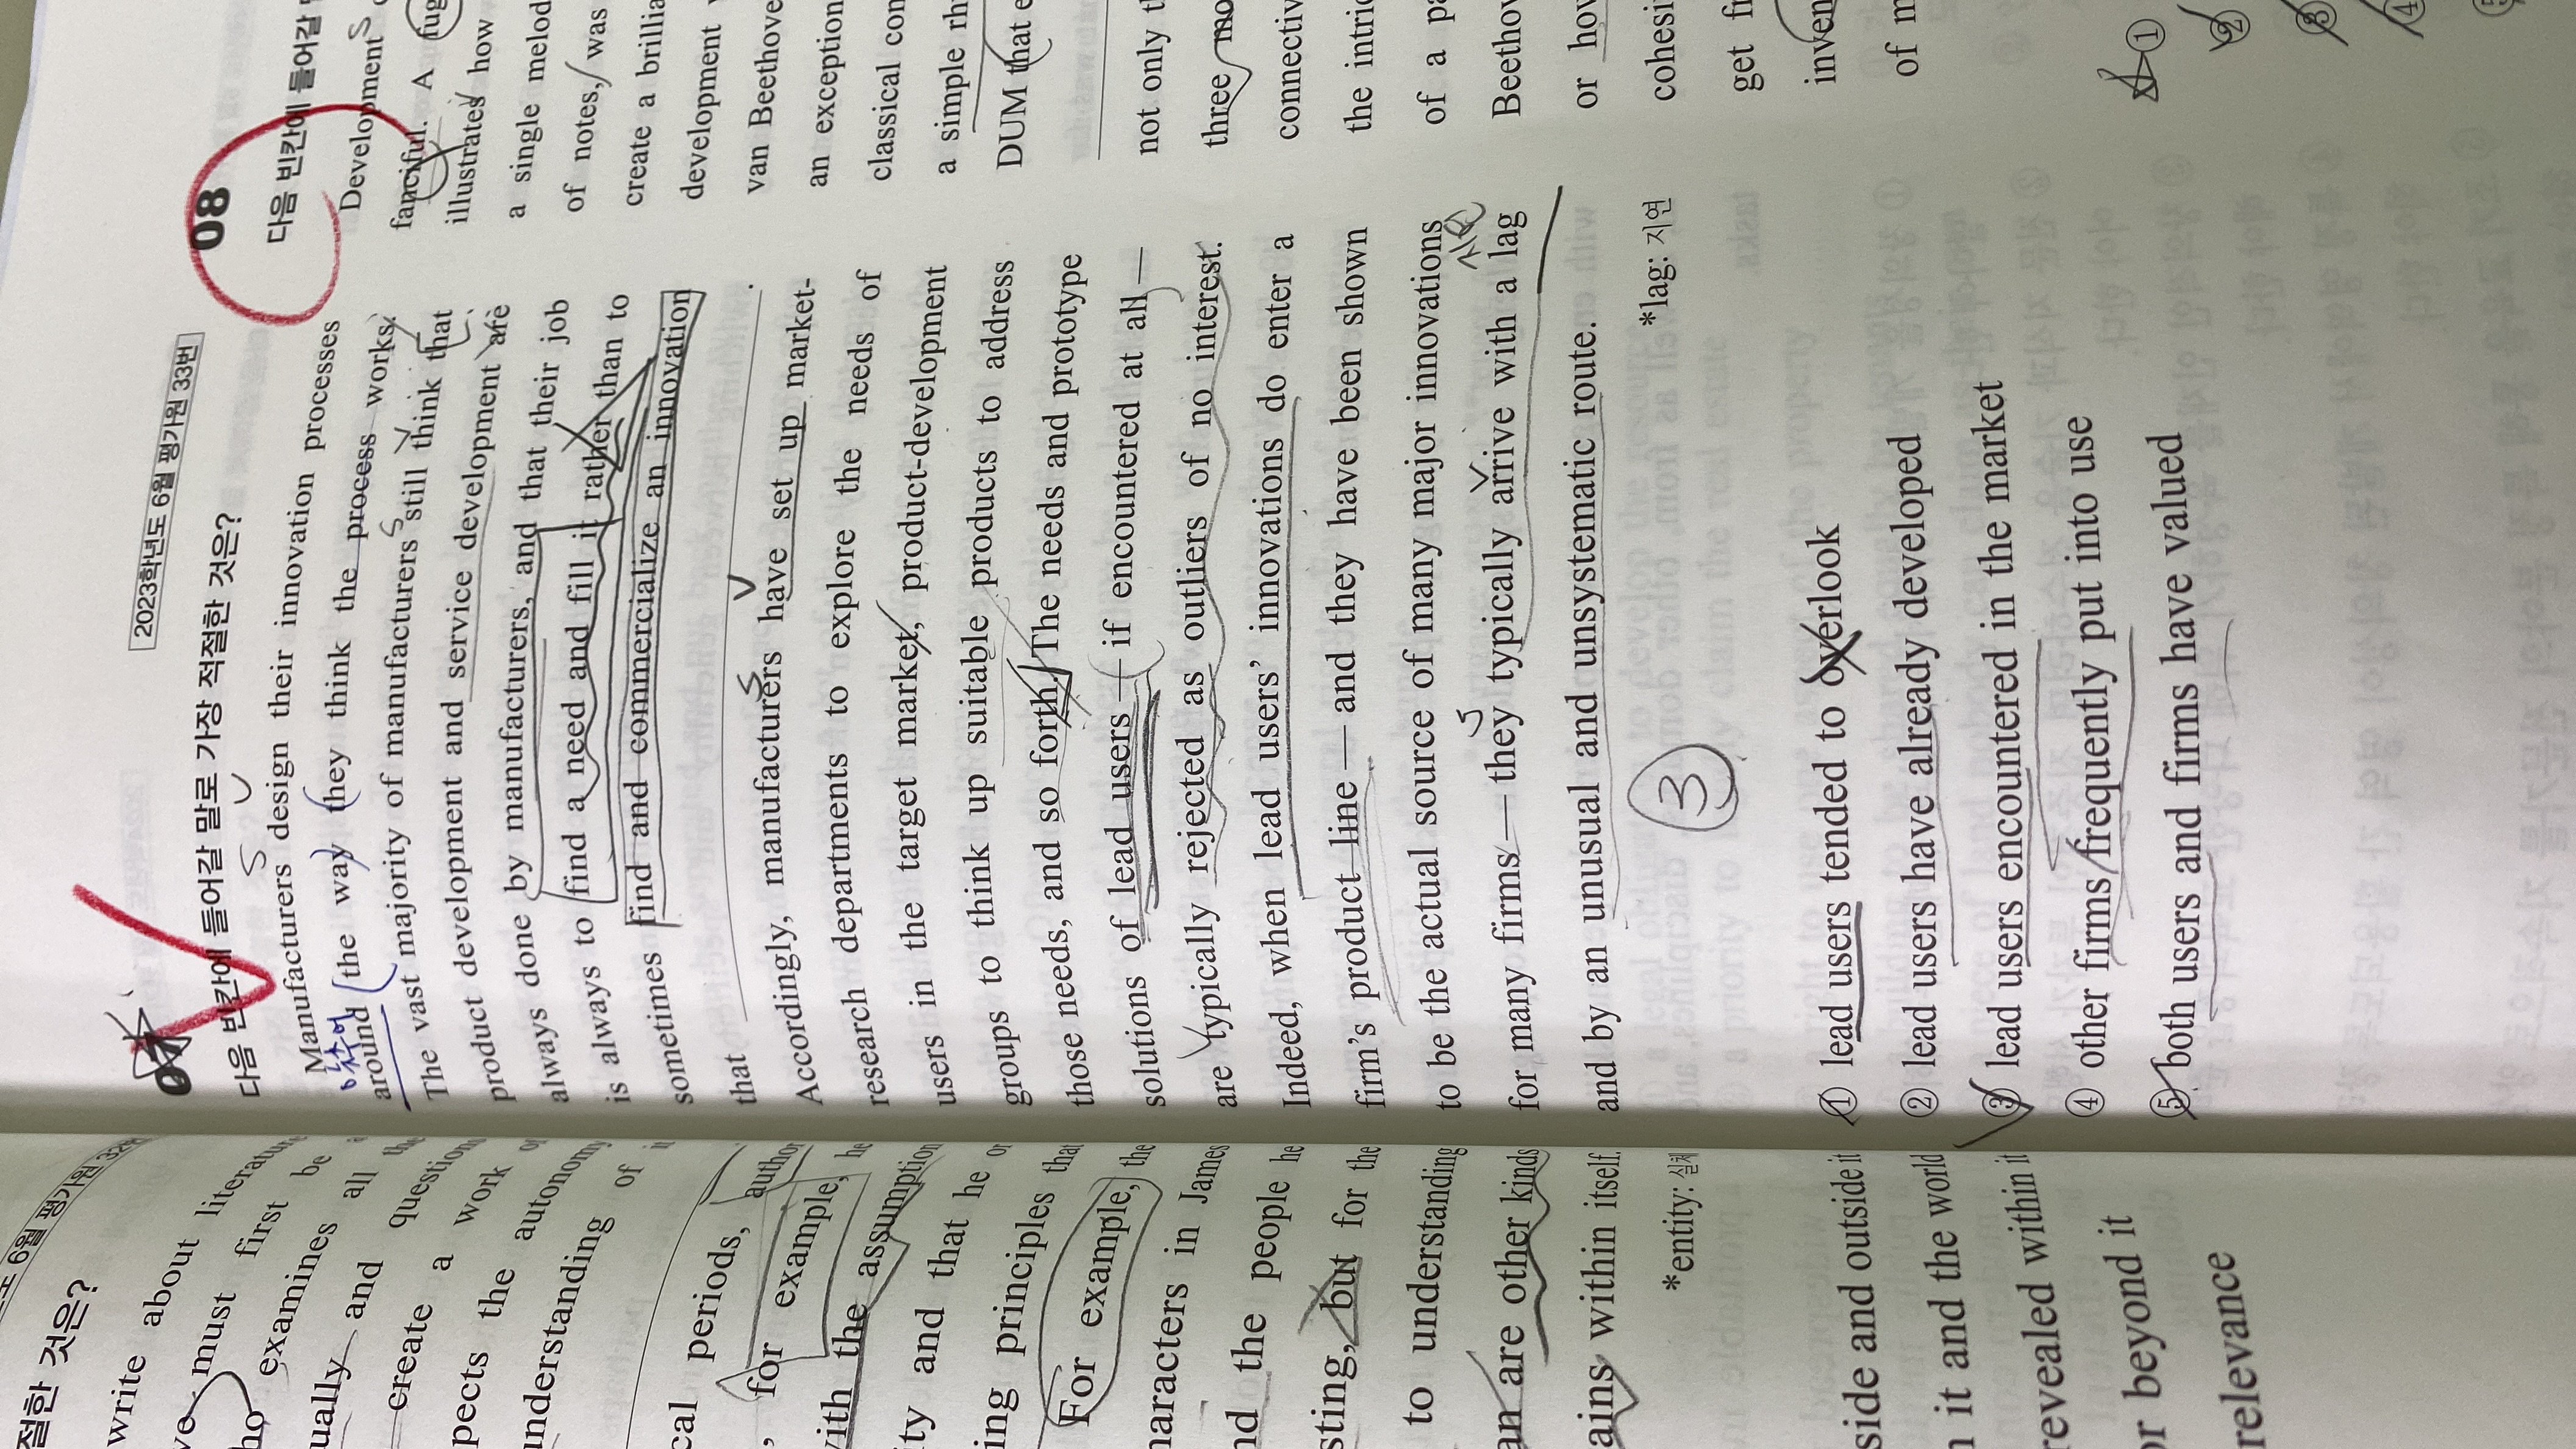 절한 것은?
write about literature
must first be
examines all
ually and question
create a work
pects the autonomy
understanding of it
cal periods, author
, for example, he
with the assumption
ity and that he or
ing principles that
For example, the
haracters in James
nd the people he
sting, but for the
to understanding
an are other kinds
ains within itself.
*entity: 실체
side and outside it
n it and the world
revealed within it
or beyond it
relevance
2023학년도 6월 평가원 33번
다음 빈칸에 들어갈 말로 가장 적절한 것은?
Manufacturers design their innovation processes
around the way they think the process works.
The vast majority of manufacturers still think that
product development and service development are
always done by manufacturers, and that their job
is always to find a need and fill it rather than to
sometimes find and commercialize an innovation
that .
Accordingly, manufacturers have set up market-
research departments to explore the needs of
users in the target market, product-development
groups to think up suitable products to address
those needs, and so forth. The needs and prototype
solutions of lead users — if encountered at all —
are typically rejected as outliers of no interest.
Indeed, when lead users' innovations do enter a
firm's product line — and they have been shown
to be the actual source of many major innovations
for many firms — they typically arrive with a lag
and by an unusual and unsystematic route.
*lag: 지연
3
① lead users tended to overlook
② lead users have already developed
③ lead users encountered in the market
④ other firms frequently put into use
⑤ both users and firms have valued
08
다음 빈칸에 들어갈
Development
fanciful. A fug
illustrates how
a single melod
of notes, was
create a brillia
development
van Beethove
an exception
classical con
a simple rh
DUM that e
not only t
three mo
connectiv
the intric
of a pa
Beethov
or how
cohesi
get fr
inven
of m
①
②
③
④
⑤